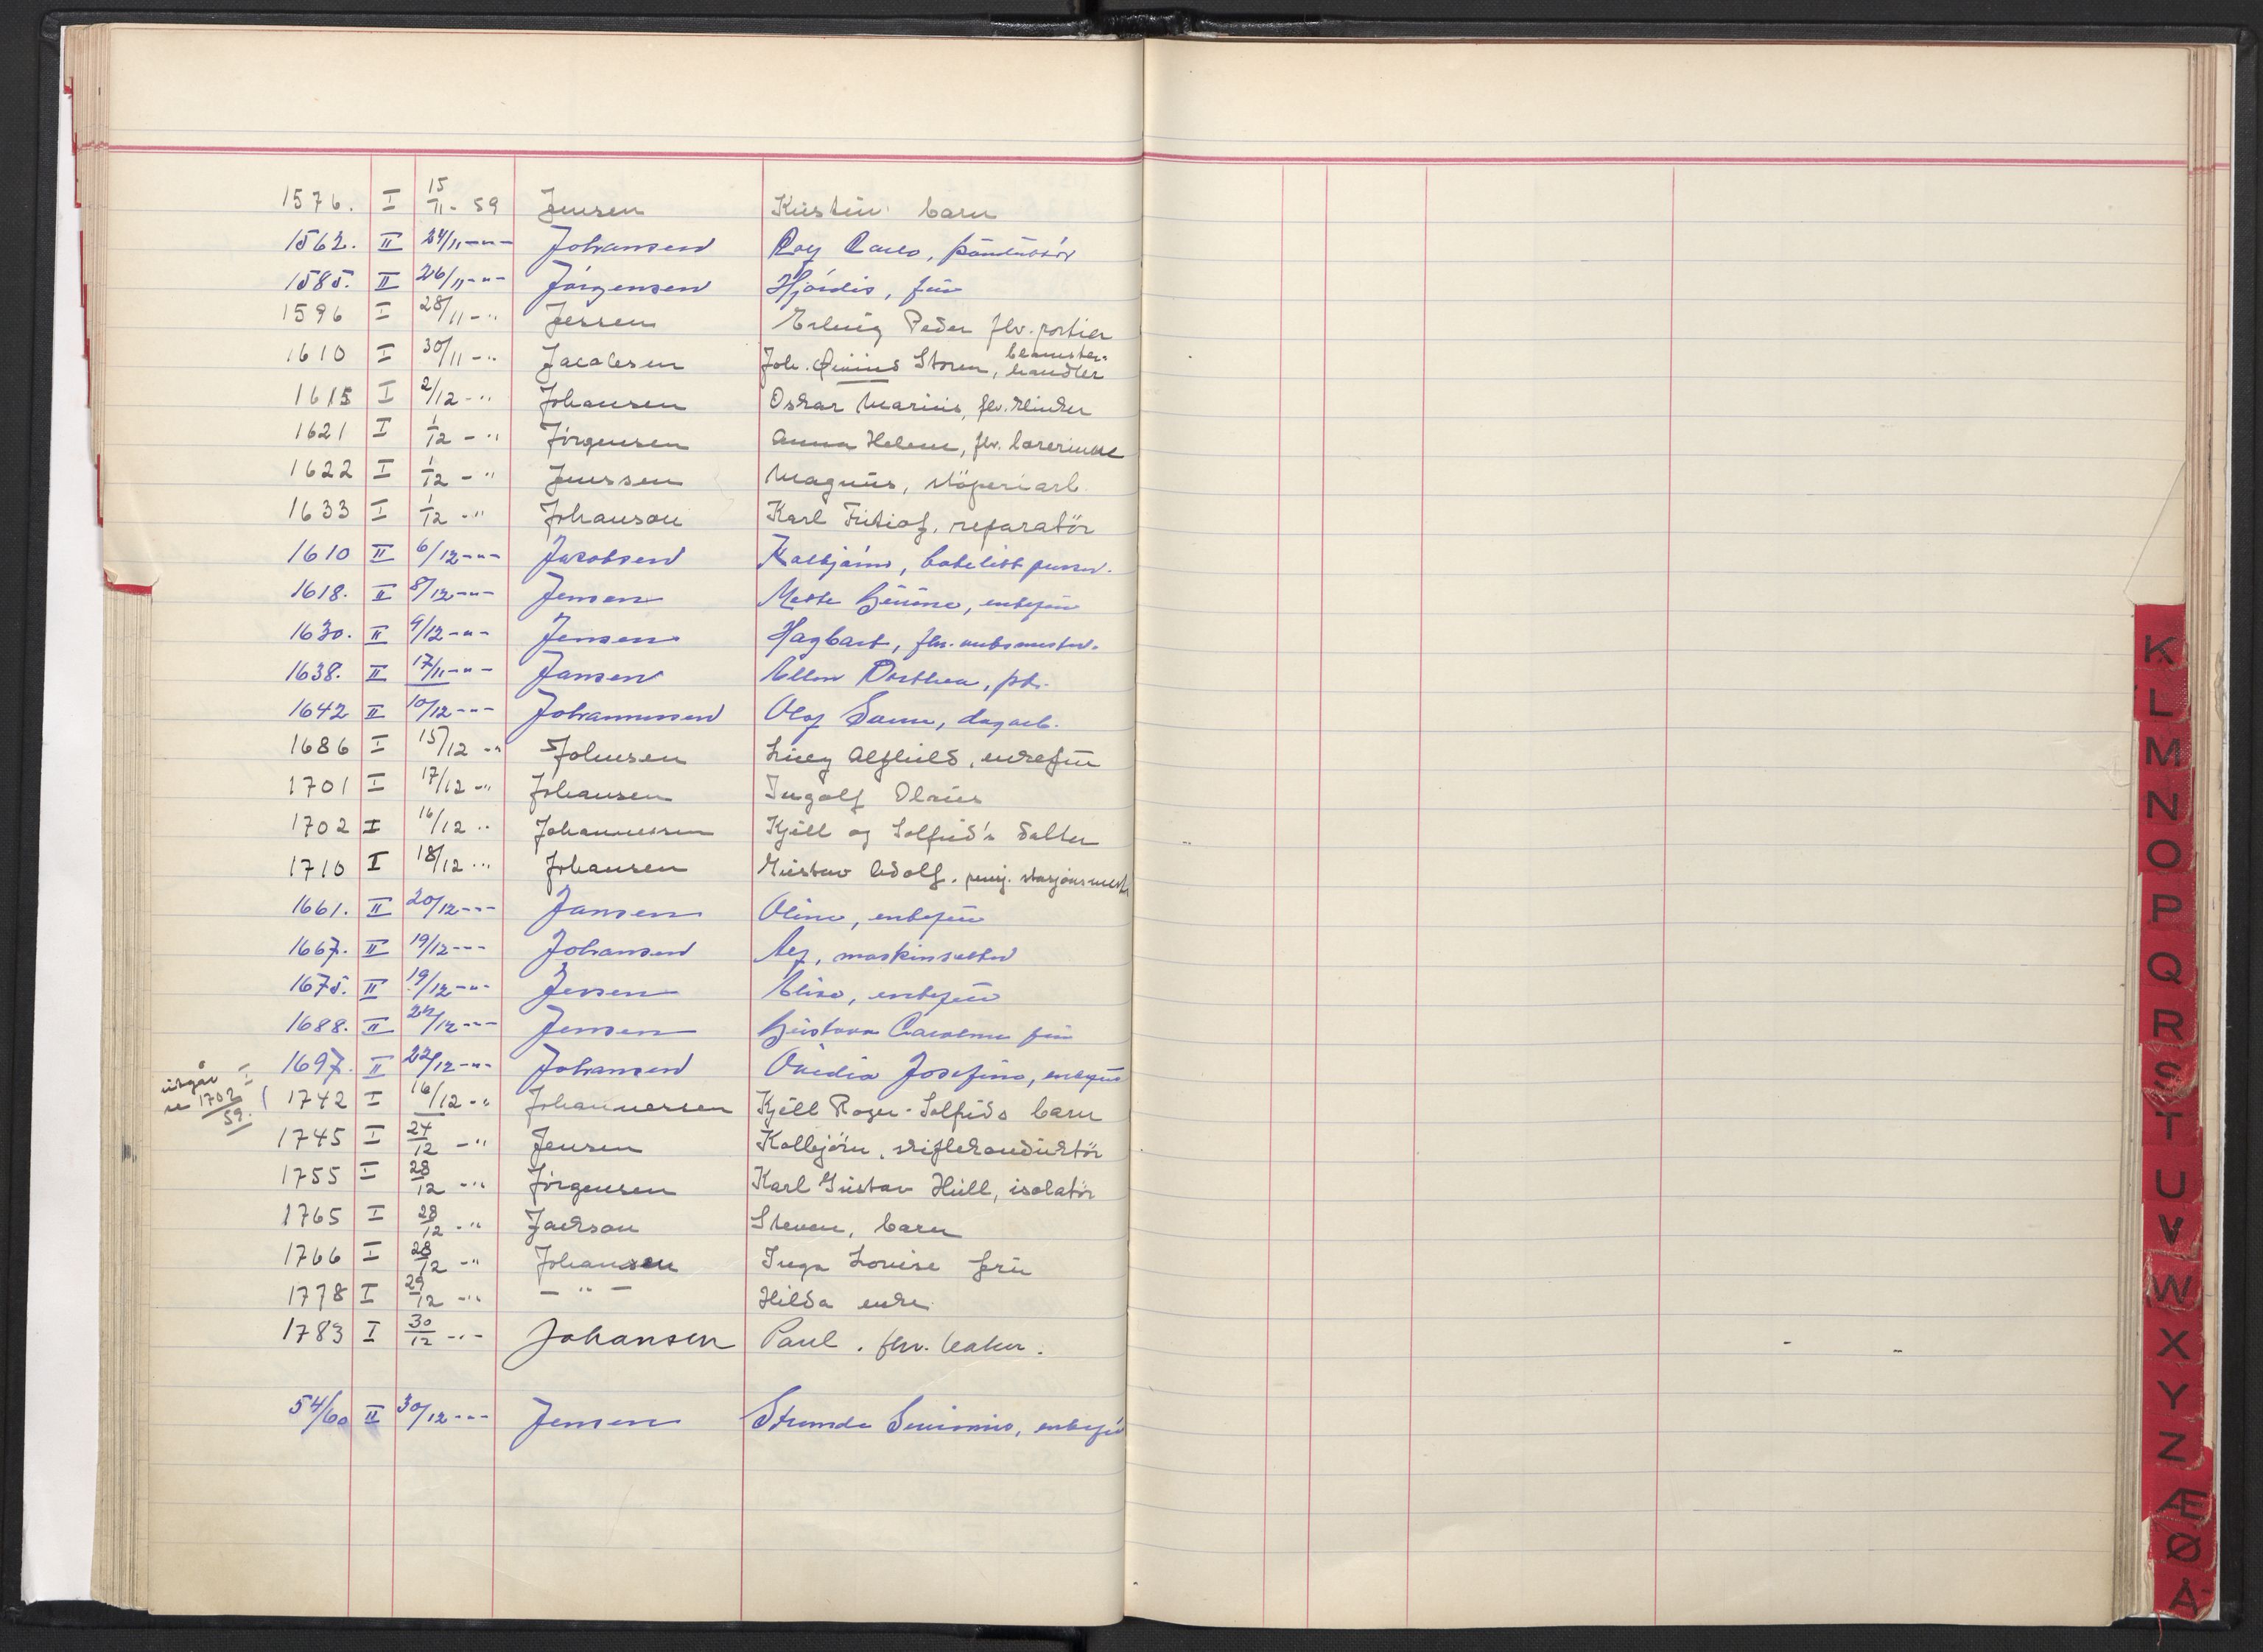 1576. I 15/11 - 59 Jensen Kirstin barn
1562. II 24/11 -"- Johansen Roy Carlo,
1585. II 26/11 -"- Jörgensen Hjördis, frü
1596 I 28/11 -" Jessen Erling Peder flv. portier
1610 I 30/11 -" Jacobsen Joh. Qvinius Storm, blomster-
handler
1615 I 2/12 -" Johansen Oskar Marius, flv. klinker
1621 I 1/12 -" Jörgensen Anna Helene, flv. lærerinne
1622 I 1/12 -" Jenssen Magnüs, stöperiarb.
1633 I 1/12 -" Johanson Karl Fritiof, reparatör
1610 II 6/12 -"- Jacobsen Kolbjörns,
1618. II 8/12 -"- Jensen enkefrü
1630. II 9/12 -"- Jensen Hagbart, flv.
1638. II 17/11 -"- Jansen Ellen Dorthea,
1642 II 10/12 -"- Johannessen Olaf dagarb.
1686 I 15/12 -" Johnsen Lucy Alfhild, enkefrü
1701 I 17/12 -" Johansen Ingolf Olaüs
1702 I 16/12 -" Johannessen Kjell og Solfrid's datter
1710 I 18/12 -" Johansen Güstav Adolf. pensj. stasjonsmest
1661. II 20/12 -"- Jansen Oline, enkefrü
1667. II 19/12 -"- Johansen Alf, maskinsetter
1675. II 19/12 -"- Jensen Elise, enkefrü
1688. II 22/12 -"- Jensen Güstava frü
1697. II 22/12 -"- Johansen Ovidia Josefine, enkefrü
ütgår I
se 1702/59. ( 1742 I 16/12 -" Johannessen Kjell Roger - Solfrids barn
1745 I 24/12 -" Jensen Kolbjörn, skiftekondüktör
1755 I 28/12 -" Jörgensen Karl Güstav Hüll, isolatör
1765 I 28/12 -" Jackson Steven, barn
1766 I 28/12 -" Johansen Inga Lovise frü
1778 I 29/12 -" - " - Hilda enke
1783 I 30/12 -"- Johansen Paul. flv.
54/60 II 30/12 -"- Jensen enkefrü
K
L
M
N
O
P
Q
R
S
T
U
V
W
X
Y
Z
Æ
Ø
Å